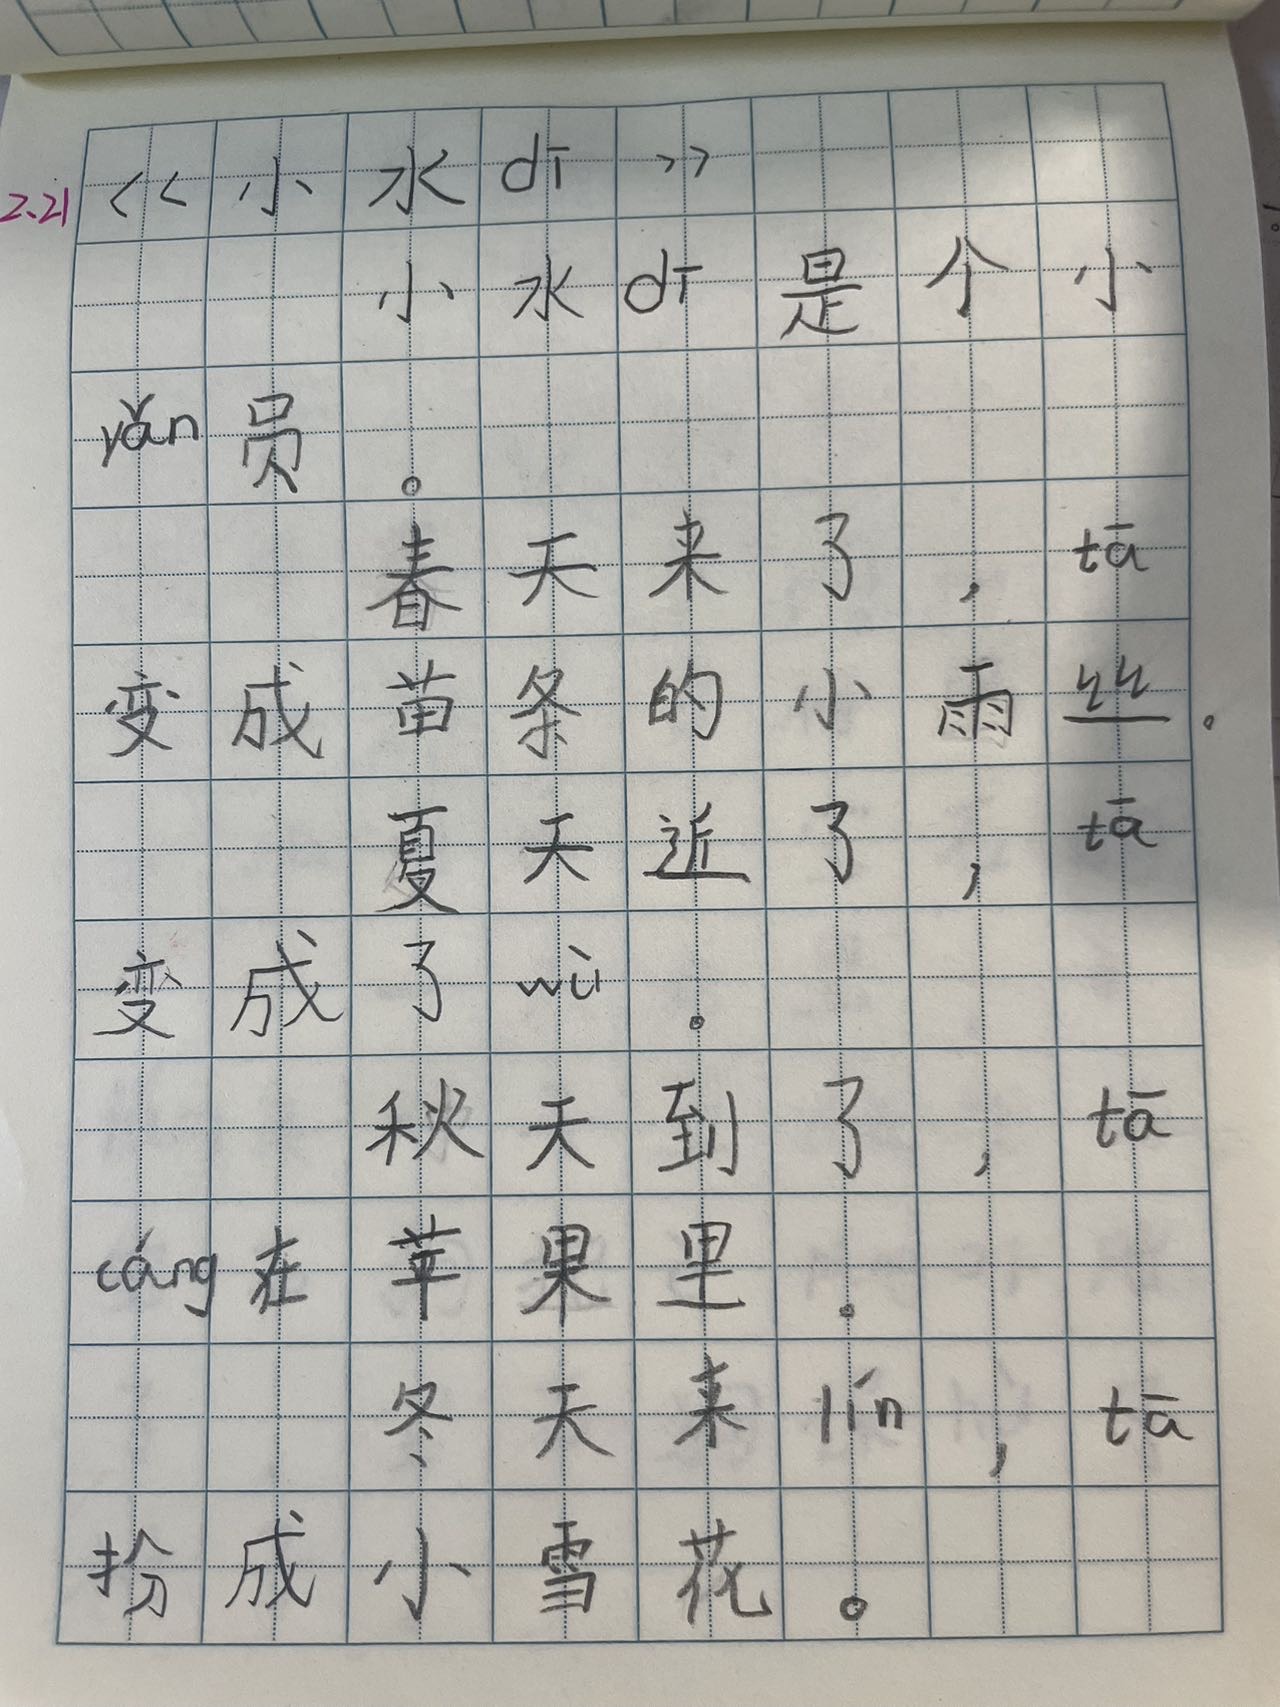 2.21
《小水dī》
小水dī是个小
yǎn员。
春天来了，tā
变成苗条的小雨丝。
夏天近了，tā
变成了wù。
秋天到了，tā
cáng在苹果里。
冬天来lín，tā
扮成小雪花。